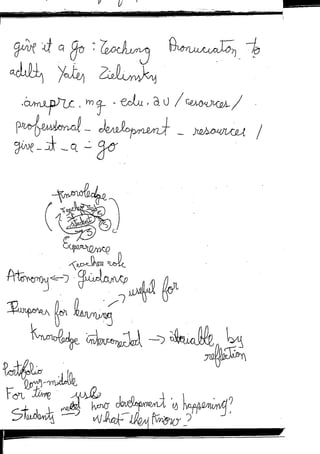 give it a go : Teaching Pronuciation to
adults Yates Zielinsky
.ameprc.mq.edu.au/resources/
professional_development_resources/
give_it_a_go
Knowledge
Experience
Teacher role
Atonomy <-> Guidance
Purposes for learning -> useful for
Knowledge interconected -> valuable by
reflection
Portfolio
low-middle
For time
Students need how development is happening?
what they know?